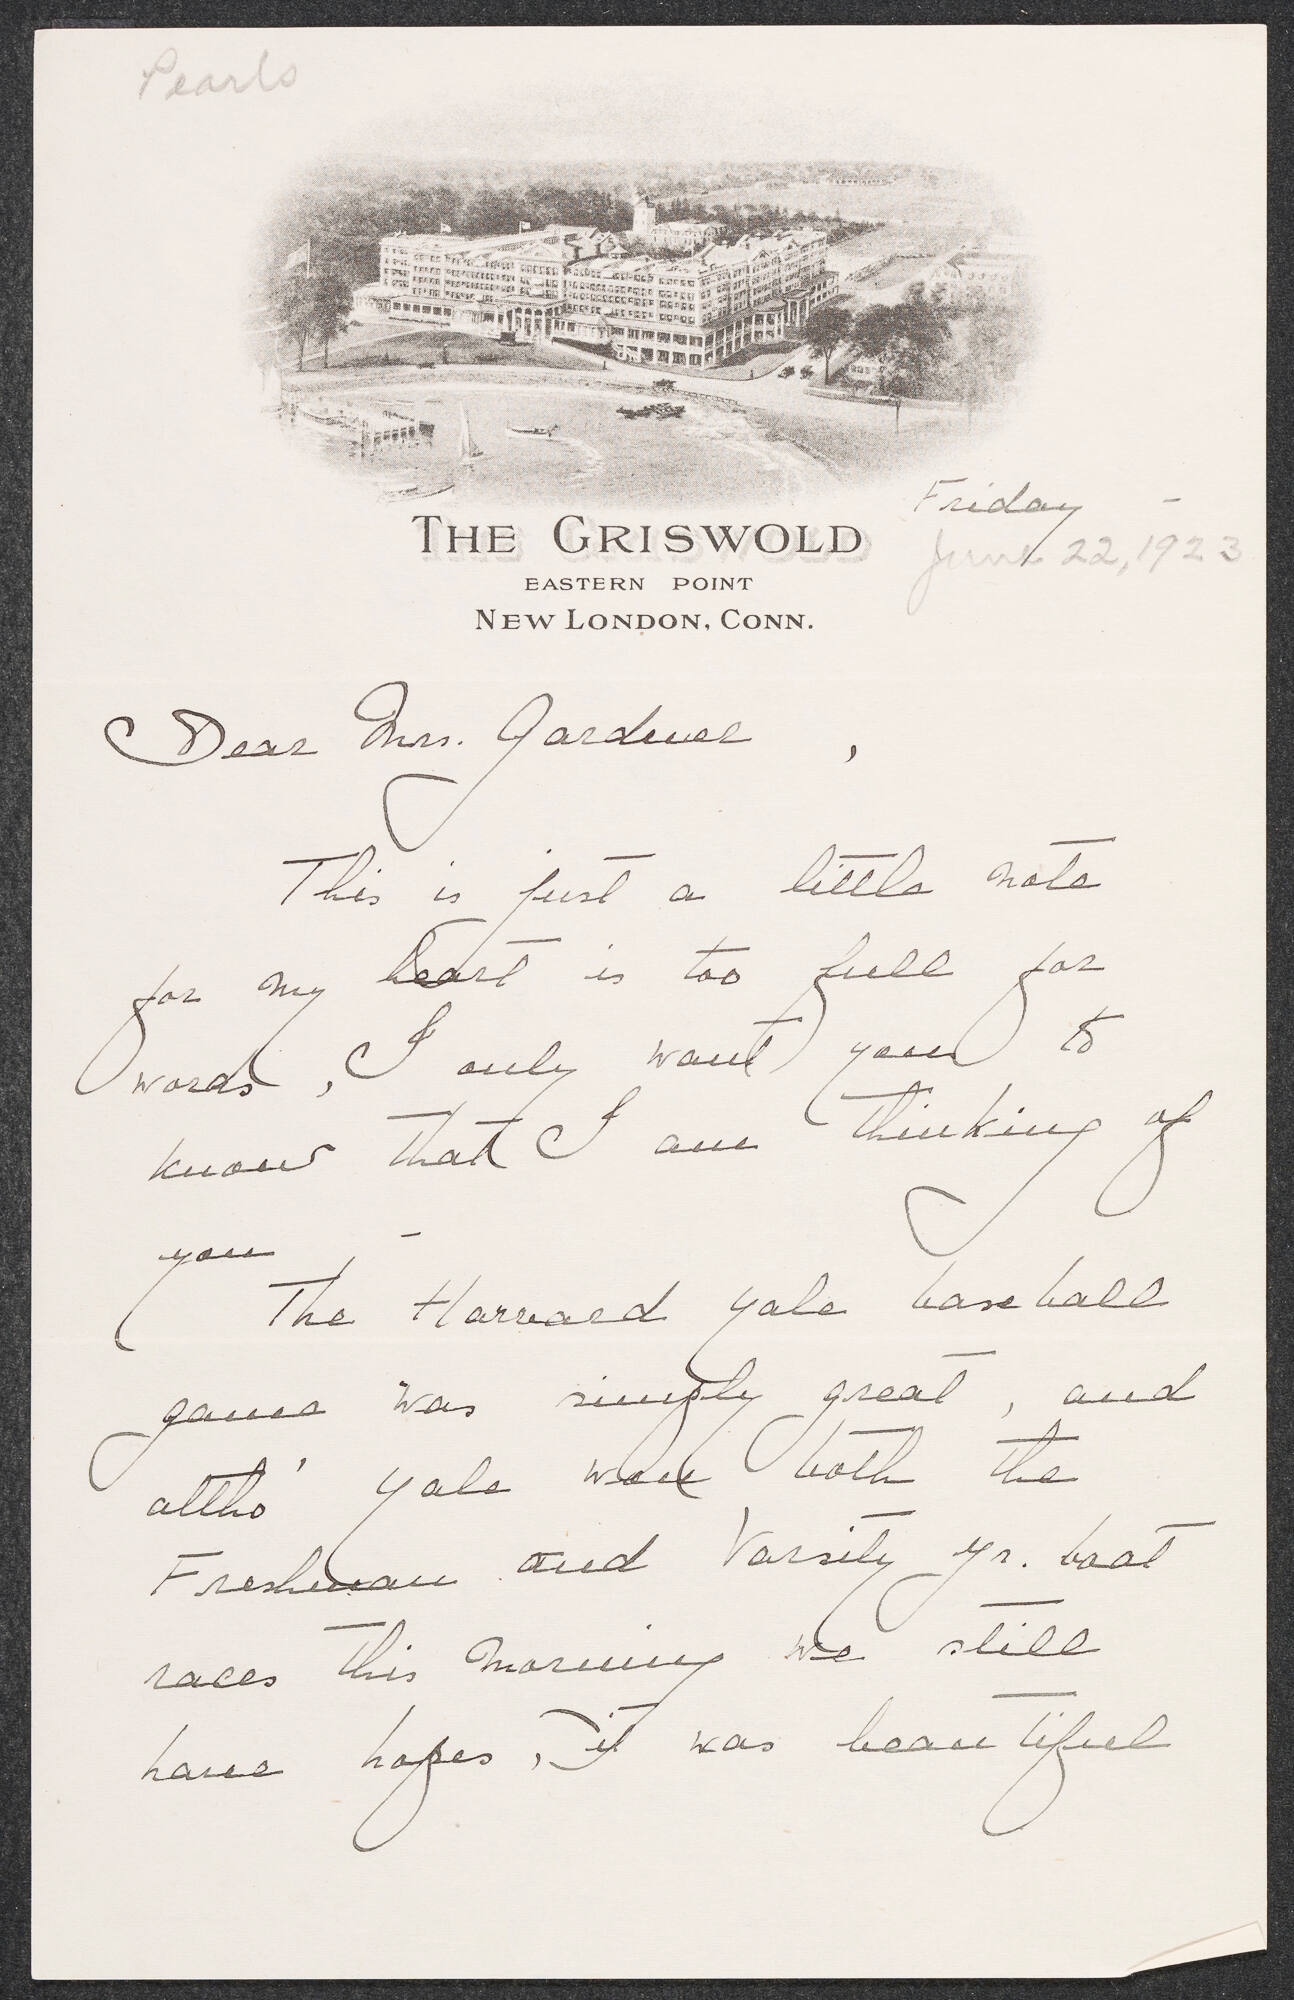 Pearls
Friday -
June 22, 1923
THE GRISWOLD
EASTERN POINT
NEW LONDON, CONN.
Dear Mrs. Gardner,
This is just a little note
for my heart is too full for
words, I only want you to
know that I am thinking of
you. -
The Harvard Yale baseball
game was simply great, and
altho' Yale won both the
Freshman and Varsity Jr. boat
races this morning we still
have hopes, it was beautiful